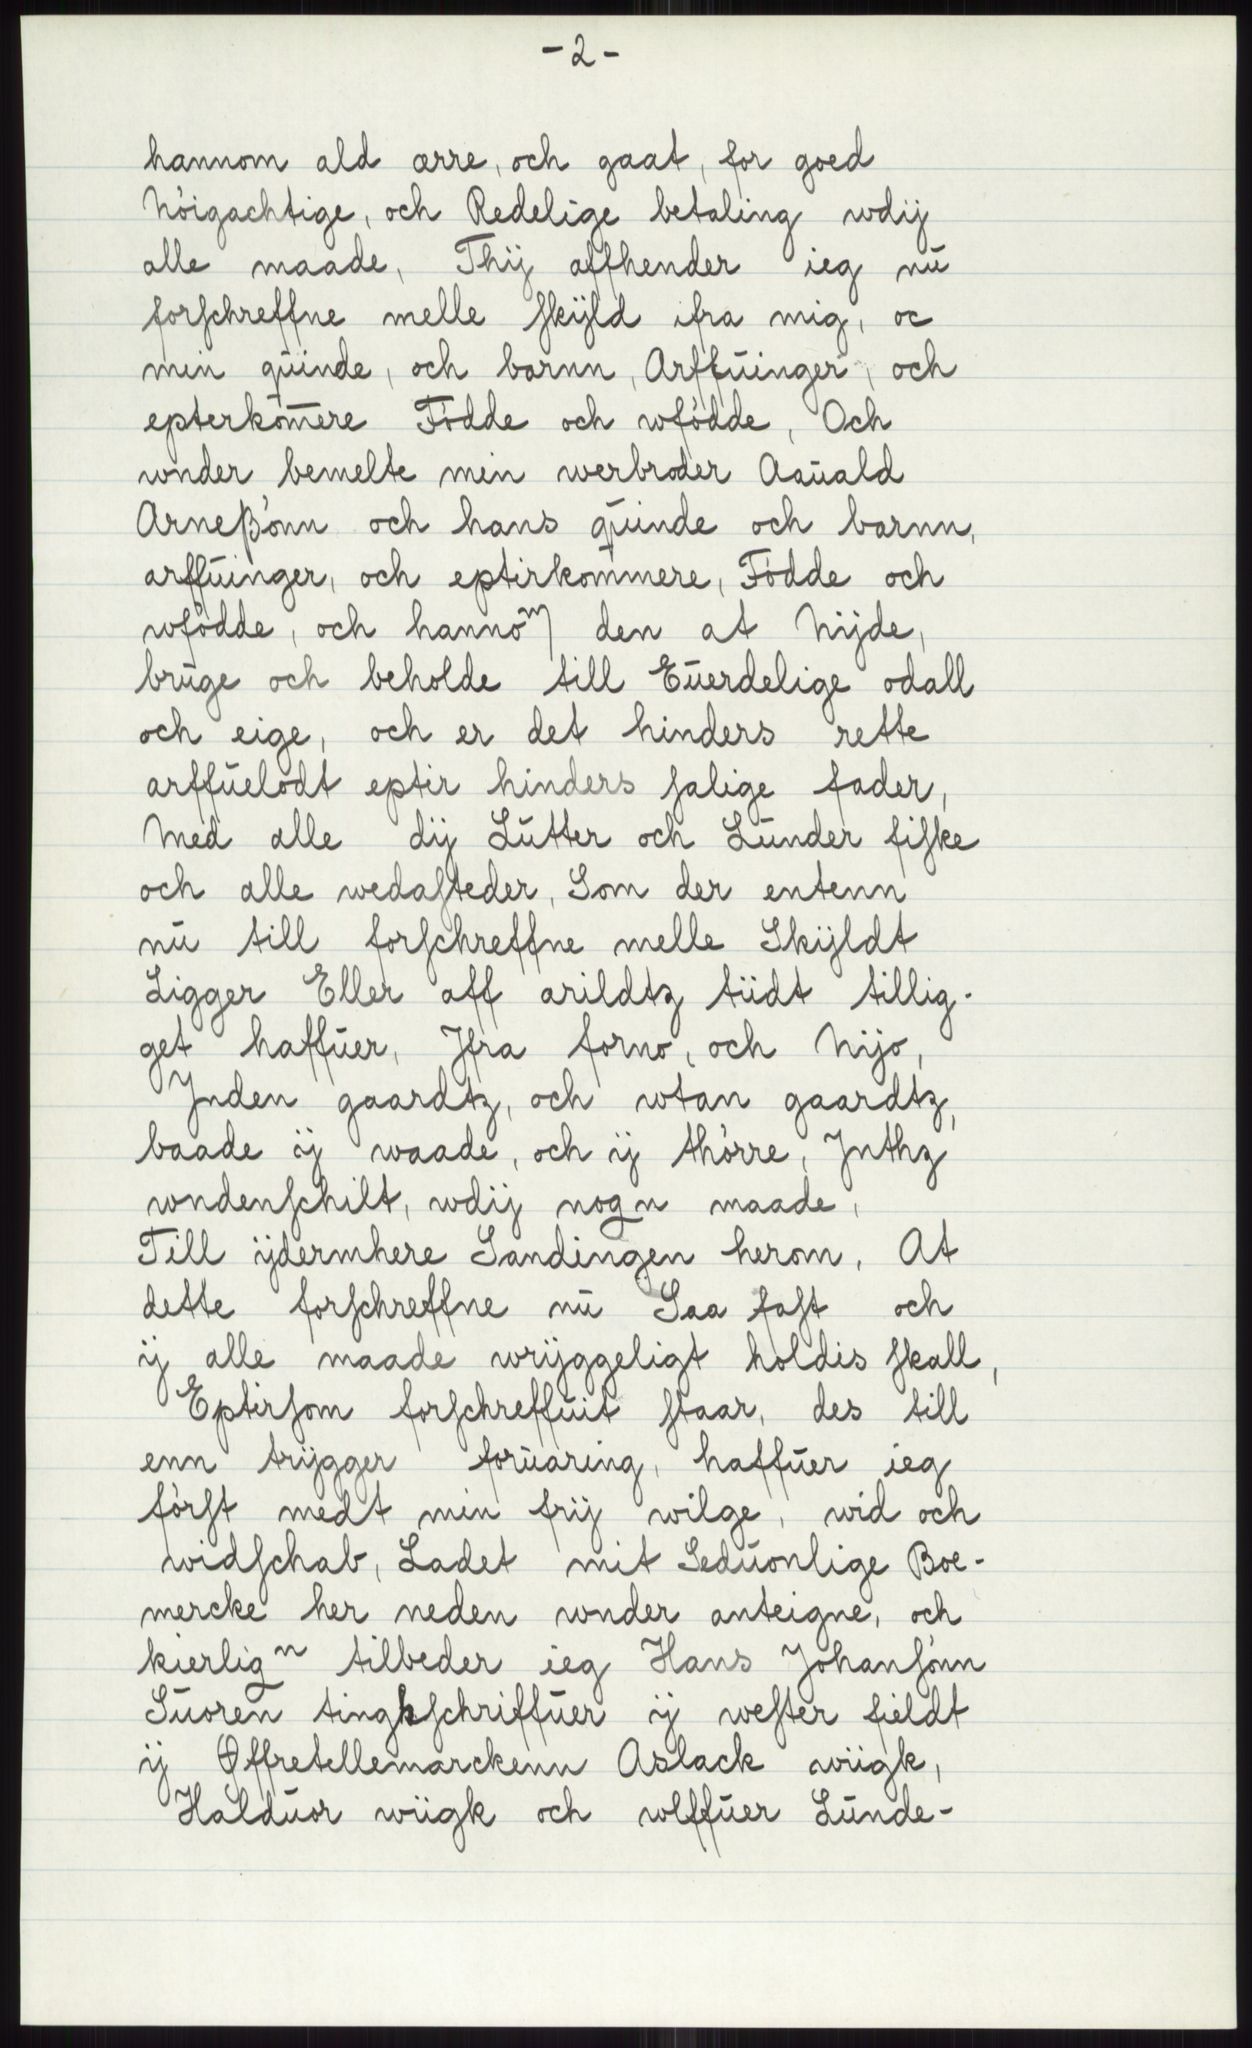 - 2 -
hannom ald ærre, och gaat, for goed
Nöigachtige, och Redelige betaling wdij
alle maade, Thij affhender ieg nū
forschreffne melle skijld ifra mig, oc
min qūinde, och barnn, Arffūinger, och
epterkom̄ere Födde och wfödde, Och
wnder bemelte min werbroder Aaūald
Arneßönn och hans qūinde och barnn,
arffūinger, och eptirkommere, Födde och
wfödde, och hannoᵐ den at Nijde,
brūge och beholde till Eūerdelige odall
och eige, och er det hinders rette
arffūelodt eptir hinders salige fader,
Med alle dij Lūtter och Lūnder fiske
och alle wedasteder, Som der entenn
nū till forschreffne melle Skijldt
Ligger Eller aff arildtz tiidt tillig-
get haffūer, Jfra forno, och Nijo,
Jnden gaardtz, och wtan gaardtz,
baade ij waade, och ij thörre, Jnthz
wndenschilt, wdij nogn maade,
Till ijdermhere Sandingen herom, At
dette forschreffne nū Saa fast och
ij alle maade wrijggeligt holdis skall,
Eptirsom forschreffūit staar, des till
enn trijgger forūaring, haffūer ieg
först medt min frij wilge, wid och
widschab, Ladet mit Sedūonlige Boe-
mercke her neden wnder anteigne, och
kierligⁿ tilbeder ieg Hans Johansönn
Sūoren tingskschriffūer ij wester fieldt
ij Øffretellemarckenn Aslack wiigk,
Haldūor wiigk och wlffūer Lūnde-